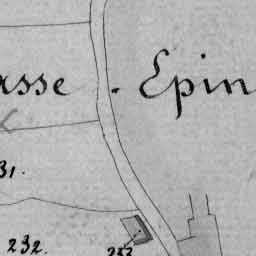 asse . Epin
31.
232.
233